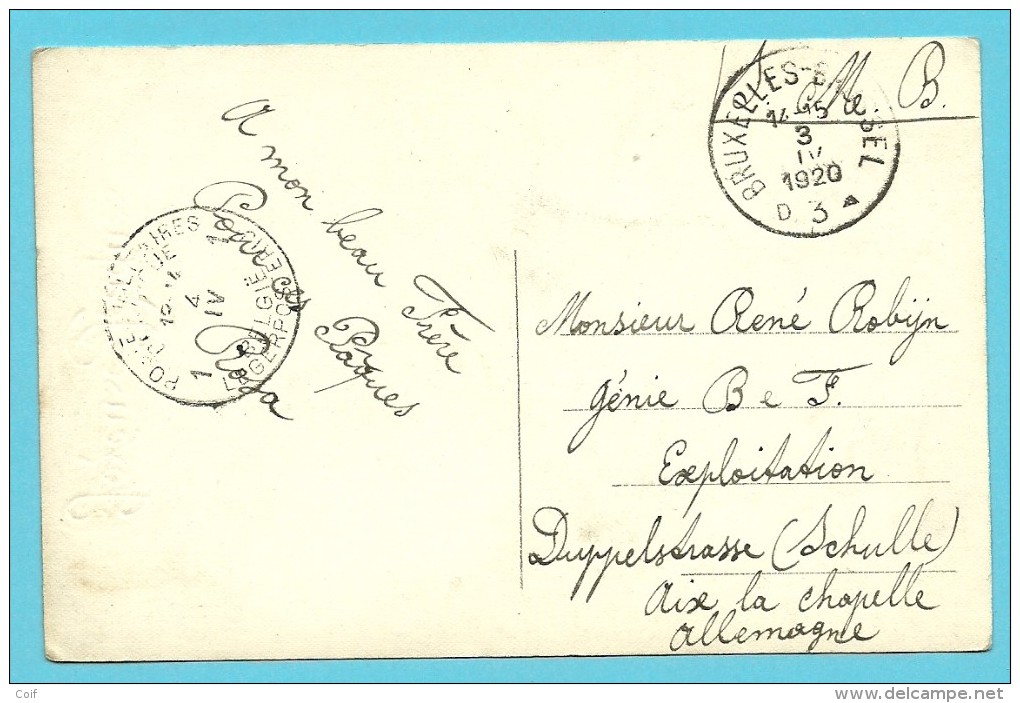 S. M. B.
BRUXELLES-BRUSSEL
14-15
3
IV
1920
D 3
A mon beau Frère
Pour ses Pâques
Rosa
POSTES MILITAIRES
BELGIQUE
4
IV
1 1
BELGIE
LEGERPOSTERIJ
Monsieur René Robijn
Génie B e F.
Exploitation
Duppelstrasse (Schulle)
Aix la Chapelle
Allemagne
Coif
delcampe.net